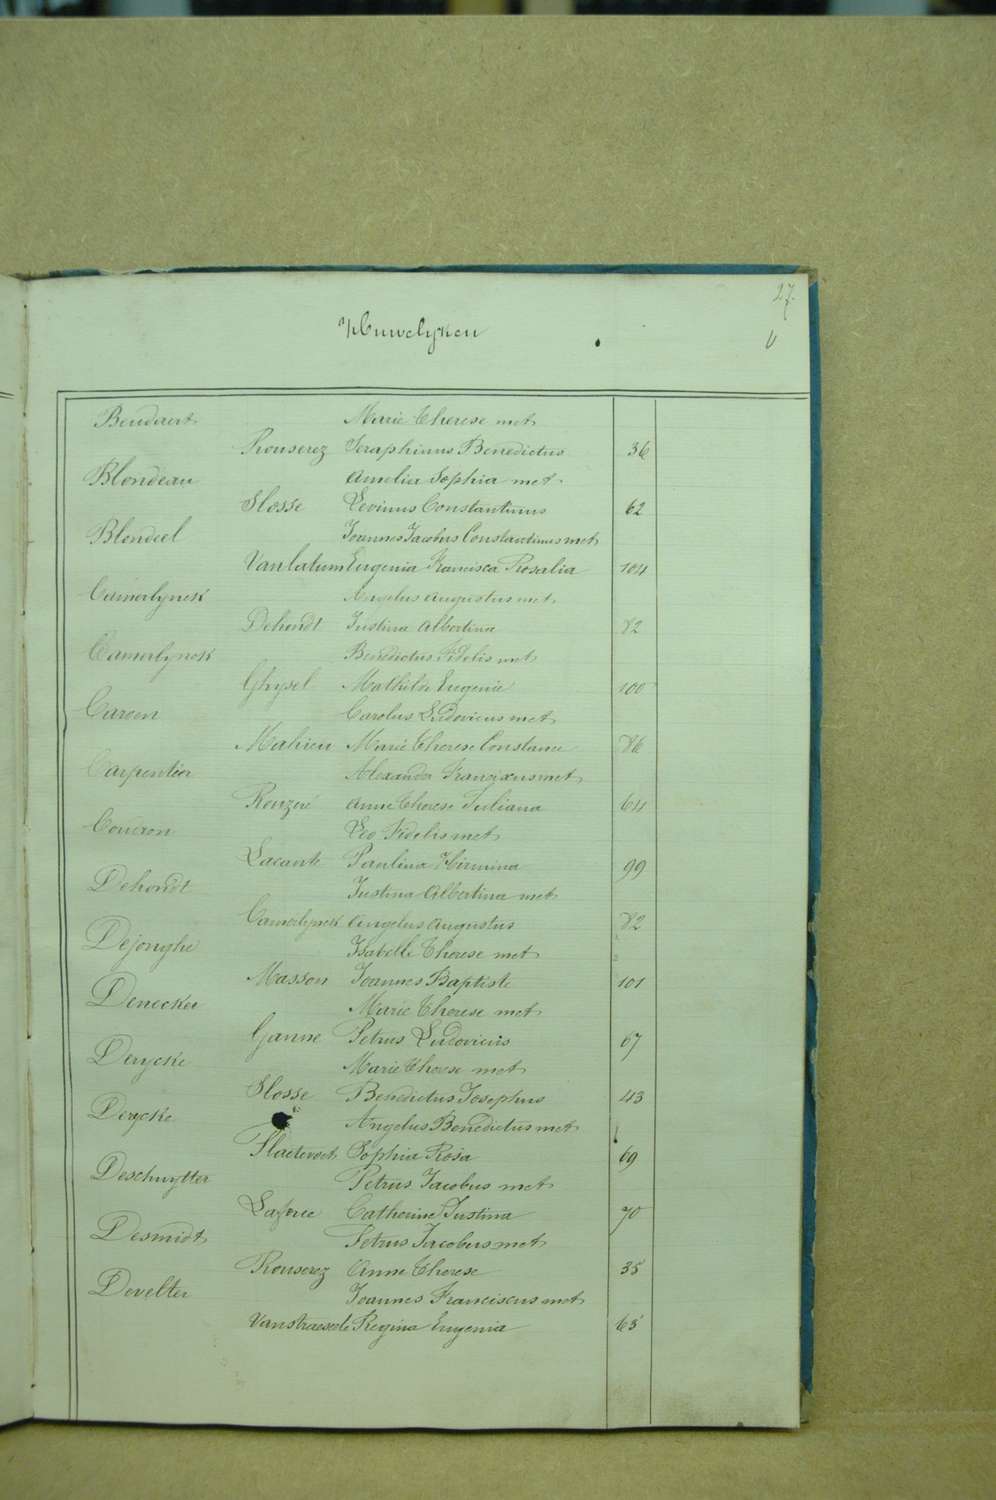 27.
Huwelyken
Beudaert Marie Therese met
Rouserez Seraphinus Benedictus 36
Blondeau Amelia Sophia met
Slosse Levinus Constantinus 62
Blondeel Joannes Jacobus Constantinus met
Vanlatum Eugenia Francisca Rosalia 104
Camerlynck Angelus Augustus met
Dehondt Justina Albertina 82
Camerlynck Benedictus Fidelis met
Ghysel Mathilde Eugenie 100
Caroen Carolus Ludovicus met
Mahieu Marie Therese Constance 86
Carpentier Alexander Franciscus met
Rouzeré Anne Therese Juliana 64
Couron Leo Fidelis met
Lacante Paulina Hermina 99
Dehondt Justina Albertina met
Camerlynck Angelus Augustus 82
Dejonghe Isabelle Therese met
Masson Joannes Baptiste 101
Denecker Marie Therese met
Ganne Petrus Ludovicus 67
Derycke Marie Therese met
Slosse Benedictus Josephus 43
Derycke Angelus Benedictus met
Flactevoet Sophia Rosa 69
Deschuytter Petrus Jacobus met
Laforce Catherine Justina 70
Desmidt Petrus Jacobus met
Rouserez Anne Therese 35
Develter Joannes Franciscus met
Vanstraesele Regina Eugenia 65